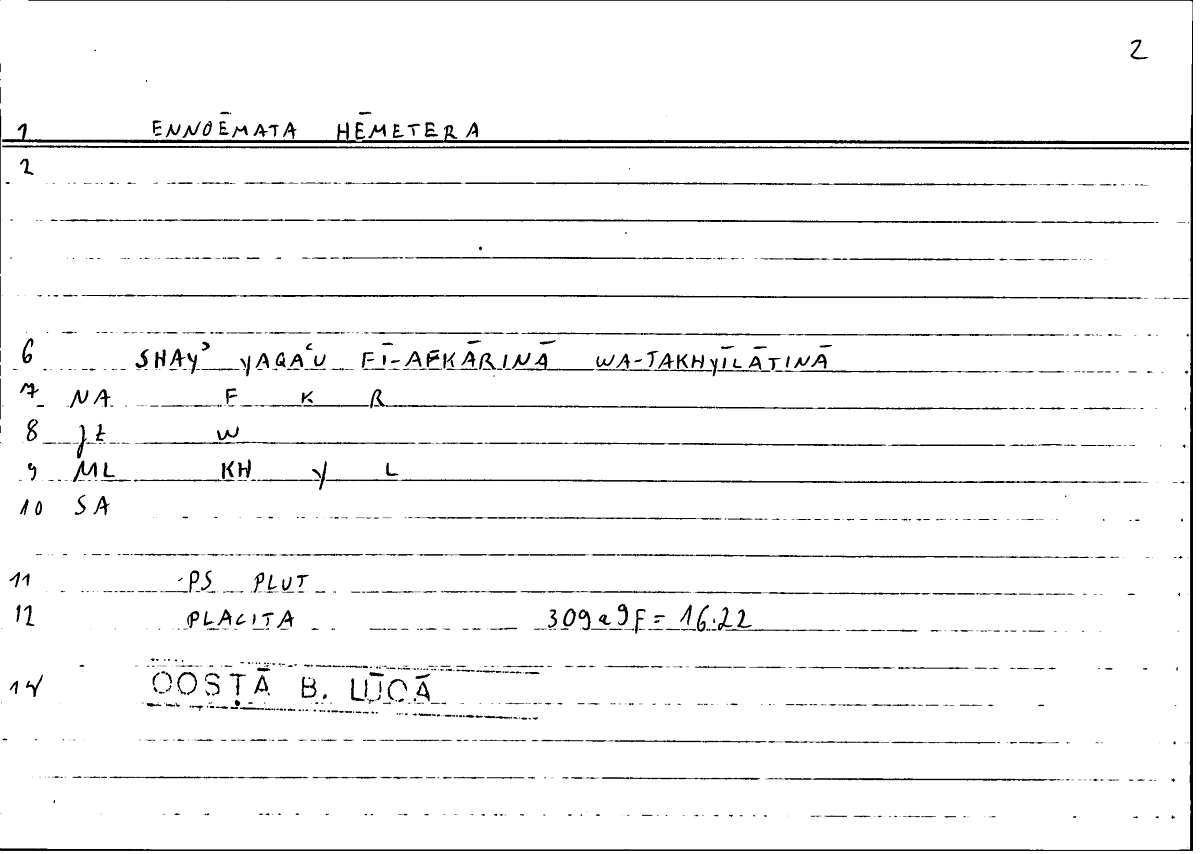 2
1 ENNOĒMATA HĒMETERA
2
6 SHAYʾ YAQAʿU FĪ-AFKĀRINĀ WA-TAKHYĪLĀTINĀ
7 NA F K R
8 W
9 ML KH Y L
10 SA
11 PS PLUT
12 PLACITA 309a9F = 16.22
14 QOSṬĀ B. LŪQĀ